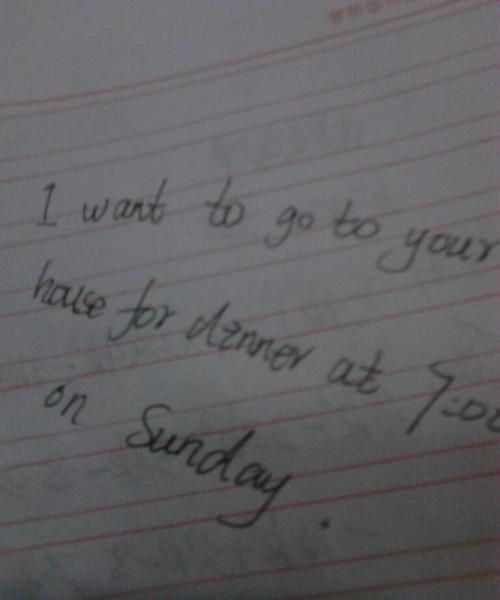 I want to go to your
house for dinner at 7:00
on Sunday.